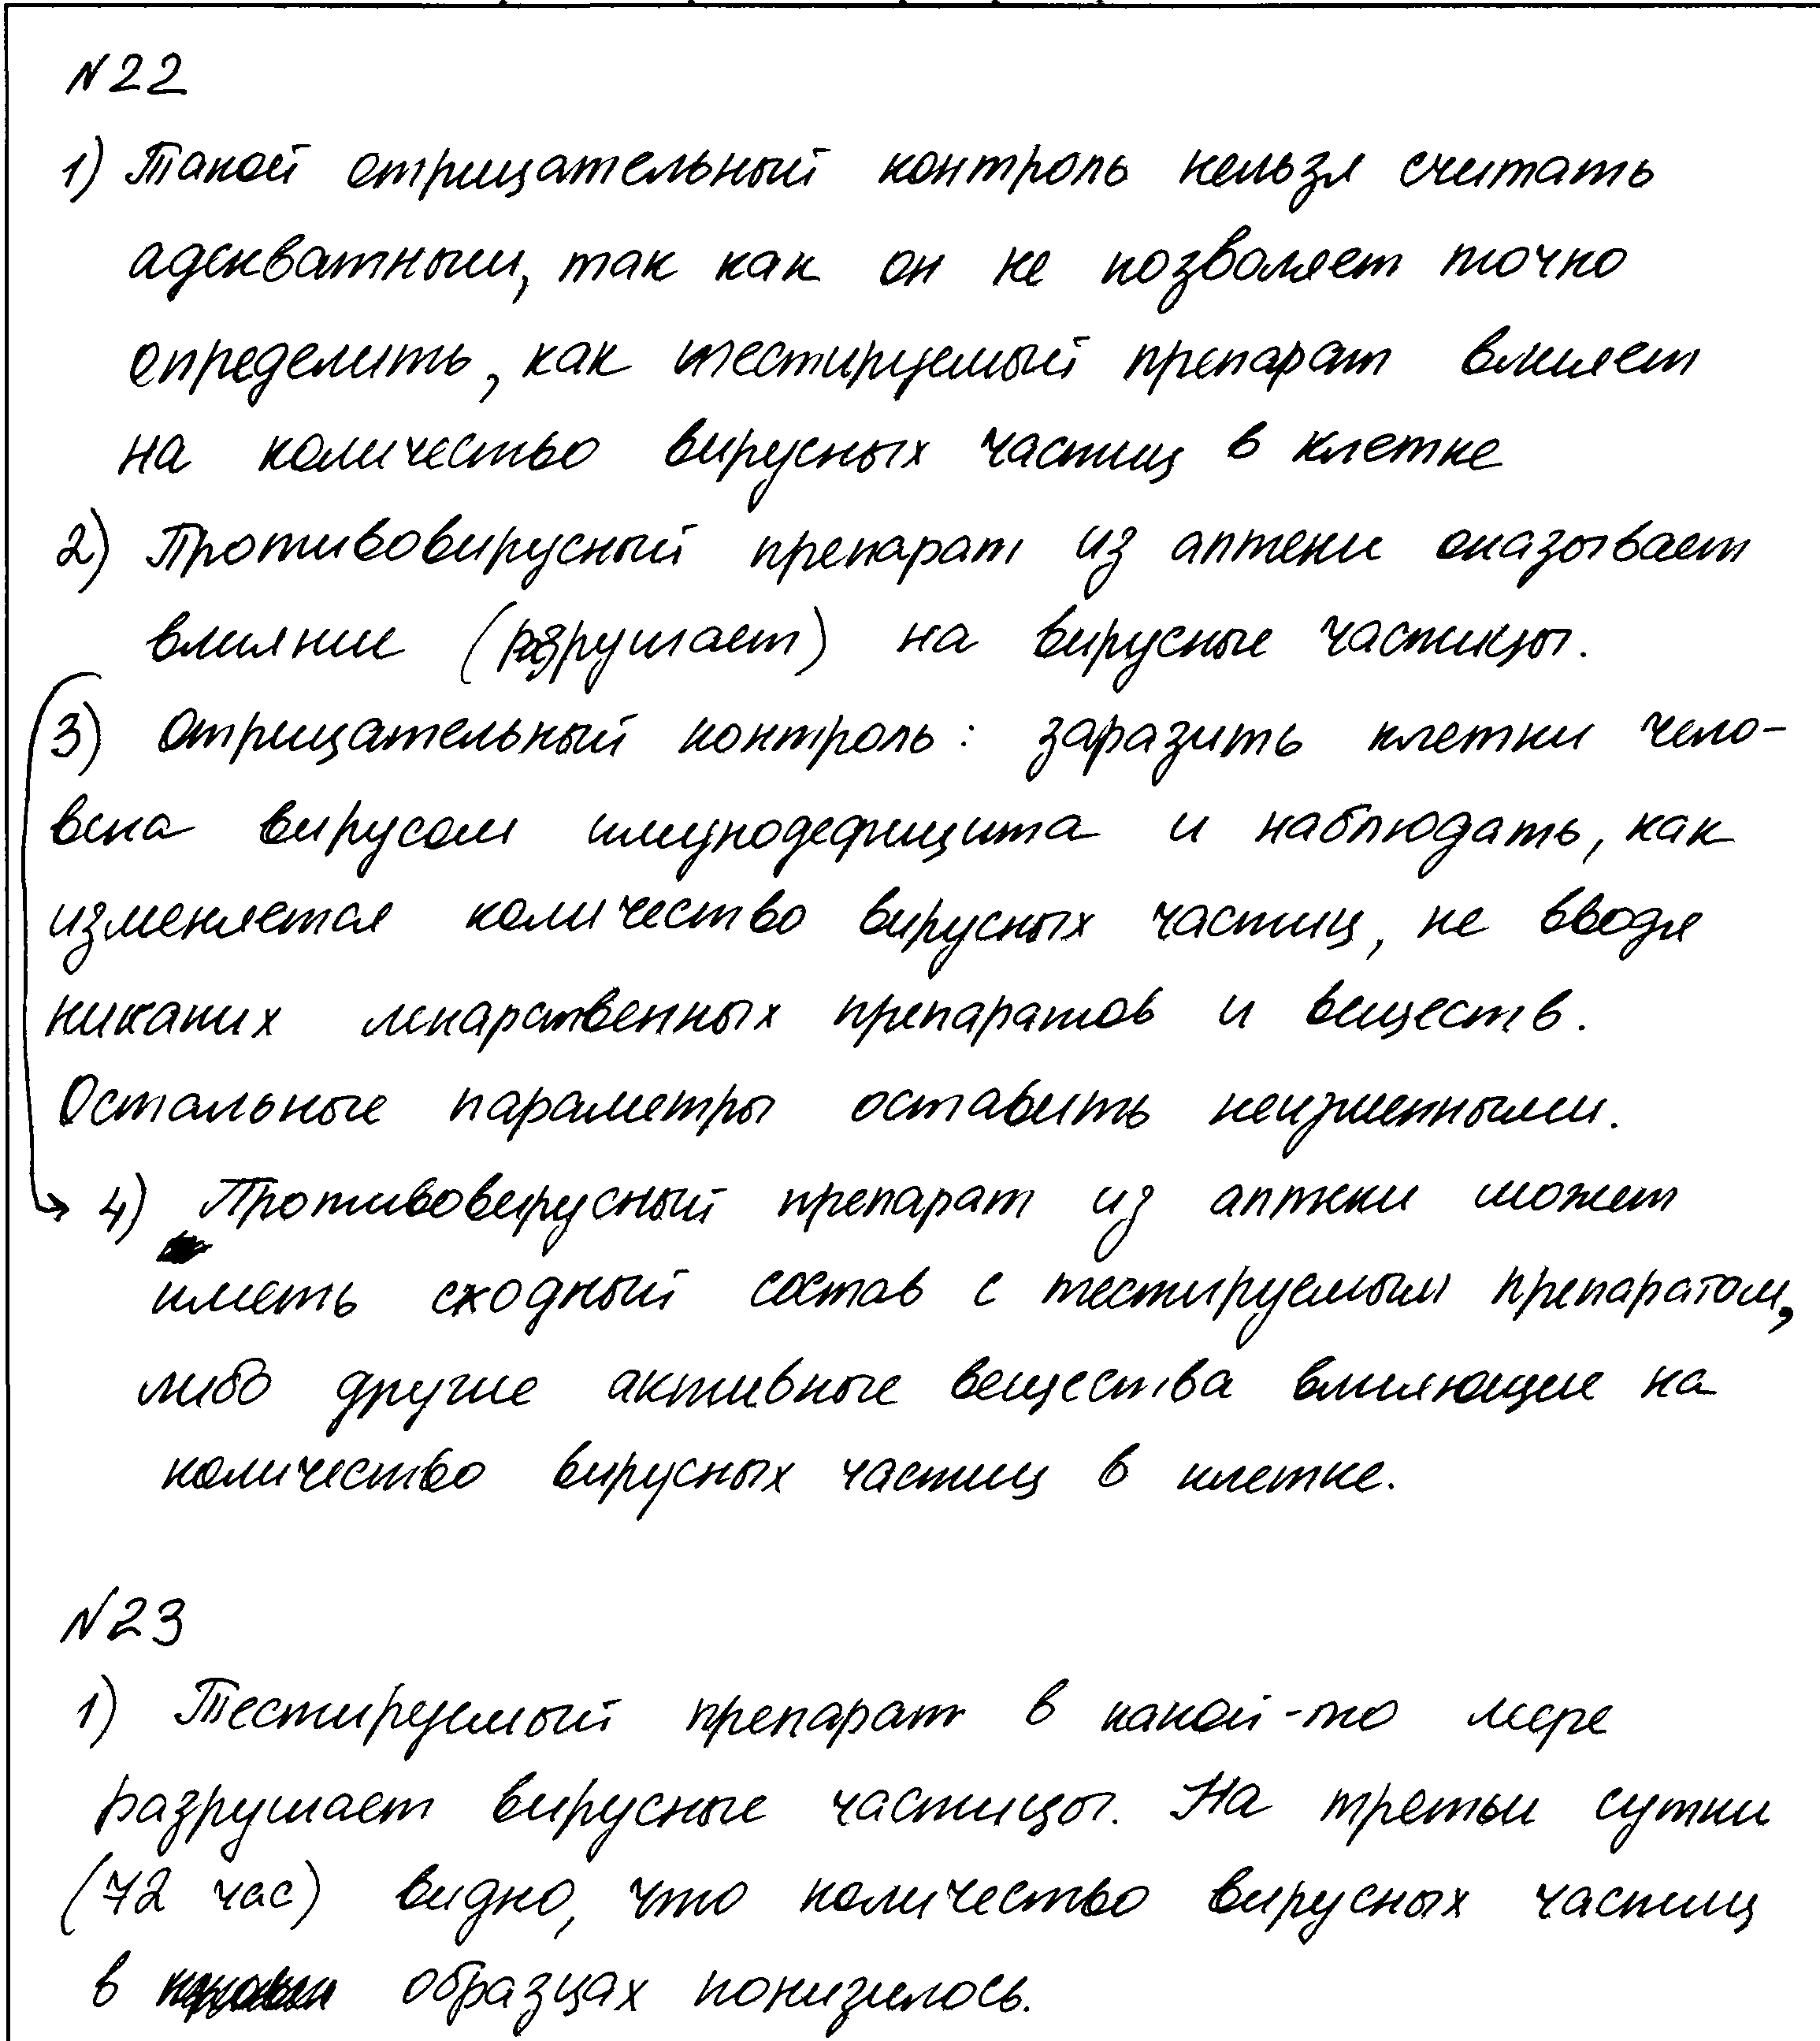 N22
1) Такой отрицательный контроль нельзя считать
адекватным, так как он не позволяет точно
определить, как тестируемый препарат влияет
на количество вирусных частиц в клетке
2) Противовирусный препарат из аптеки оказывает
влияние (разрушает) на вирусные частицы.
3) Отрицательный контроль: заразить клетки чело-
века вирусом имунодефицита и наблюдать, как
изменяется количество вирусных частиц, не вводя
никаких лекарственных препаратов и веществ.
Остальные параметры оставить неизменными.
4) Противовирусный препарат из аптеки может
иметь сходный состав с тестируемым препаратом,
либо другие активные вещества влияющие на
количество вирусных частиц в клетке.
N23
1) Тестируемый препарат в какой-то мере
разрушает вирусные частицы. На третьи сутки
(72 час) видно, что количество вирусных частиц
в образцах понизилось.